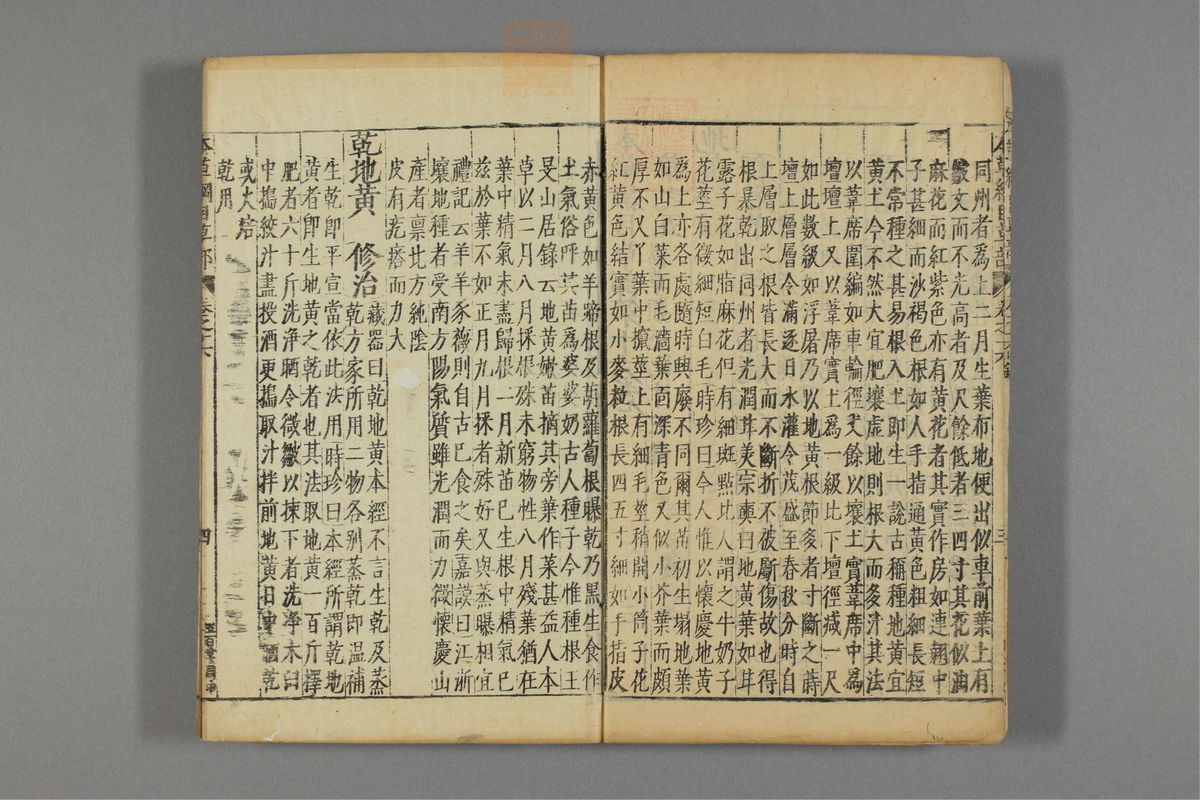 同州者爲上二月生葉布地便出似車前葉上有
皺文而不光高者及尺餘低者三四寸其花似油
麻花而紅紫色亦有黃花者其實作房如連翹中
子甚細而沙褐色根如人手指通黃色粗細長短
不常種之甚易根入土即生一說古稱種地黃宜
黃土今不然大宜肥壤虛地則根大而多汁其法
以葦席圍編如車輪徑丈餘以壤土實葦席中爲
壇壇上又以葦席實土爲一級比下壇徑減一尺
如此數級如浮屠乃以地黃根節多者寸斷之蒔
壇上層層令滿逐日水灌令茂盛至春秋分時自
上層取之根皆長大而不斷折不被斸傷故也得
根暴乾出同州者光潤耳美宗奭曰地黃葉如耳
露子花如脂麻花但有細斑點比人謂之牛奶子
花莖有微細短白毛時珍曰今人惟以懷慶地黃
爲上亦各處隨時興廢不同爾其苗初生塌地葉
如山白菜而毛濇葉面深青色又似小芥葉而頗
厚不又丫葉中攛莖上有細毛莖稍開小筒子花
紅黃色結實如小麥粒根長四五寸細如手指皮
赤黃色如羊蹄根及胡蘿蔔根曝乾乃黑生食作
土氣俗呼其苗爲婆婆奶古人種子今惟種根王
旻山居錄云地黃嫩苗摘其旁葉作菜甚益人本
草以二月八月採根殊未窮物性八月殘葉猶在
葉中精氣未盡歸根二月新苗已生根中精氣已
滋於葉不如正月九月採者殊好又與蒸曝相宜
禮記云羊羊豕薇則自古已食之矣嘉謨曰江浙
壤地種者受南方陽氣質雖光潤而力微懷慶山
產者禀北方純陰
皮有疙瘩而力大
乾地黃 修治 藏器曰乾地黃本經不言生乾及蒸
乾方家所用二物各別蒸乾即温補
生乾即平宣當依此法用時珍曰本經所謂乾地
黃者即生地黃之乾者也其法取地黃一百斤擇
肥者六十斤洗淨晒令微皺以揀下者洗淨木臼
中搗絞汁盡投酒更搗取汁拌前地黃日中曬乾
或火焙
乾用
本草綱目草部 卷之十六 四